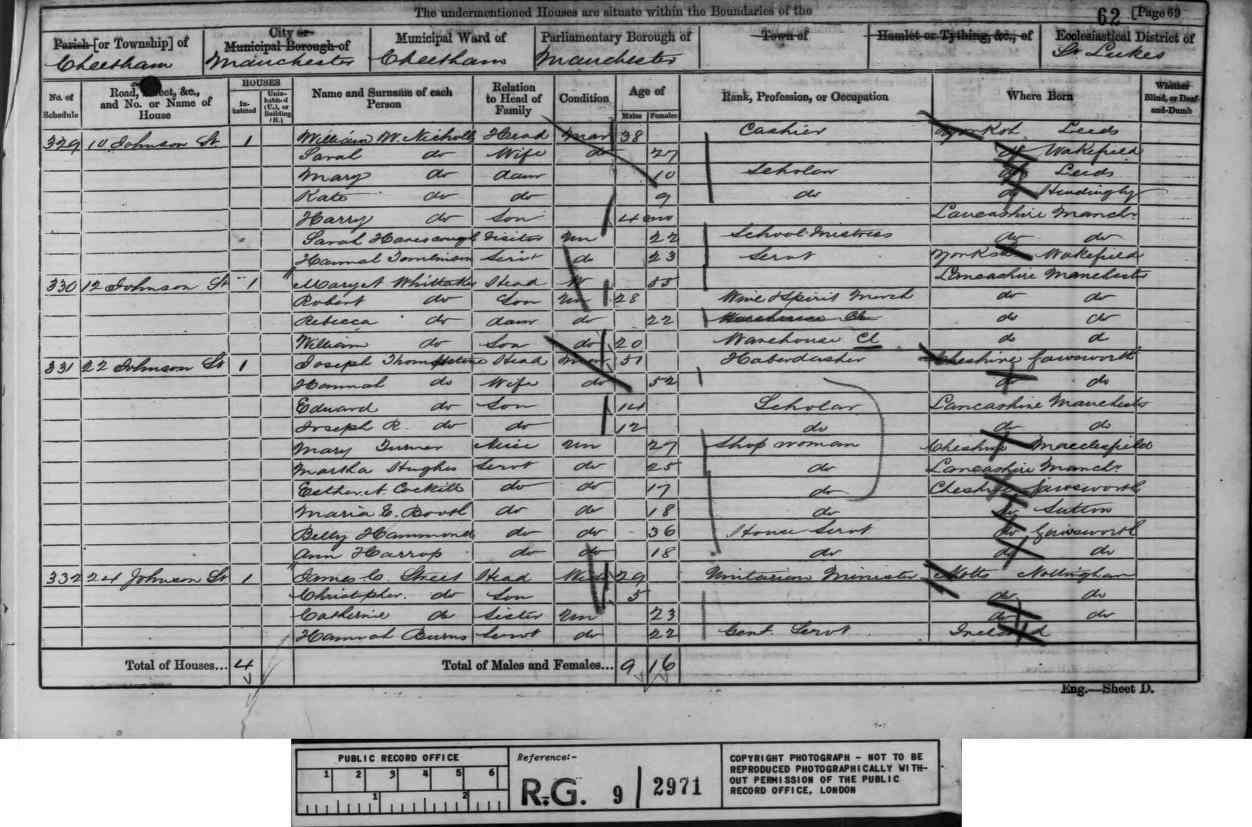 The undermentioned Houses are situate within the Boundaries of the
62 [Page 69
Parish [or Township] of
City or Municipal Borough of
Municipal Ward of
Parliamentary Borough of
Town of
Hamlet or Tything, &c., of
Ecclesiastical District of
Cheetham Manchester Cheetham Manchester St Lukes
No. of Schedule
Road, Street, &c., and No. or Name of House
HOUSES
Inhabited
Uninhabited (U.), or Building (B.)
Name and Surname of each Person
Relation to Head of Family
Condition
Age of
Males
Females
Rank, Profession, or Occupation
Where Born
Whether Blind, or Deaf-and-Dumb
329 10 Johnson St 1 William W. Nicholls Head Mar 38 Cashier Yorksh Leeds
Sarah do Wife do 27 do Wakefield
Mary do daur 10 Scholar do Leeds
Kate do do 9 do do Headingley
Harry do Son 4 mo Lancashire Manchr
Sarah Visitor Un 22 School Mistress do do
Hannah Tomlinson Servt do 23 Servt Yorksh Wakefield
330 12 Johnson St 1 Margt Whittaker Head W 55 Lancashire Manchester
Robert do Son Un 28 Wine & Spirit Merch do do
Rebecca do daur do 22 Warehouse Cl do do
William do Son do 20 Warehouse Cl do d
331 22 Johnson St 1 Joseph Head Mar 51 Haberdasher Cheshire Gawsworth
Hannah do Wife do 52 do do
Edward do Son 14 Scholar Lancashire Manchester
Joseph R. do do 12 do do do
Mary Turner Niece Un 27 Shop woman Cheshire Macclesfield
Martha Hughes Servt do 25 do Lancashire Manchr
Esther A Cockitt do do 17 do Cheshire Gawsworth
Maria E. Booth do do 18 do do Sutton
Betty Hammond do do 36 House Servt do Gawsworth
Ann Harrop do do 18 do do do
332 24 Johnson St 1 James C. Street Head Wid 29 Unitarian Minister Notts Nottingham
Christopher do Son 5 do do
Catherine do Sister Un 23 do do
Hannah Burns Servt do 22 Genl Servt Ireland
Total of Houses... 4 Total of Males and Females... 9 16
Eng.—Sheet D.
PUBLIC RECORD OFFICE
1 2 3 4 5 6
1 2
Reference:-
R.G. 9 / 2971
COPYRIGHT PHOTOGRAPH - NOT TO BE
REPRODUCED PHOTOGRAPHICALLY WITH-
OUT PERMISSION OF THE PUBLIC
RECORD OFFICE, LONDON